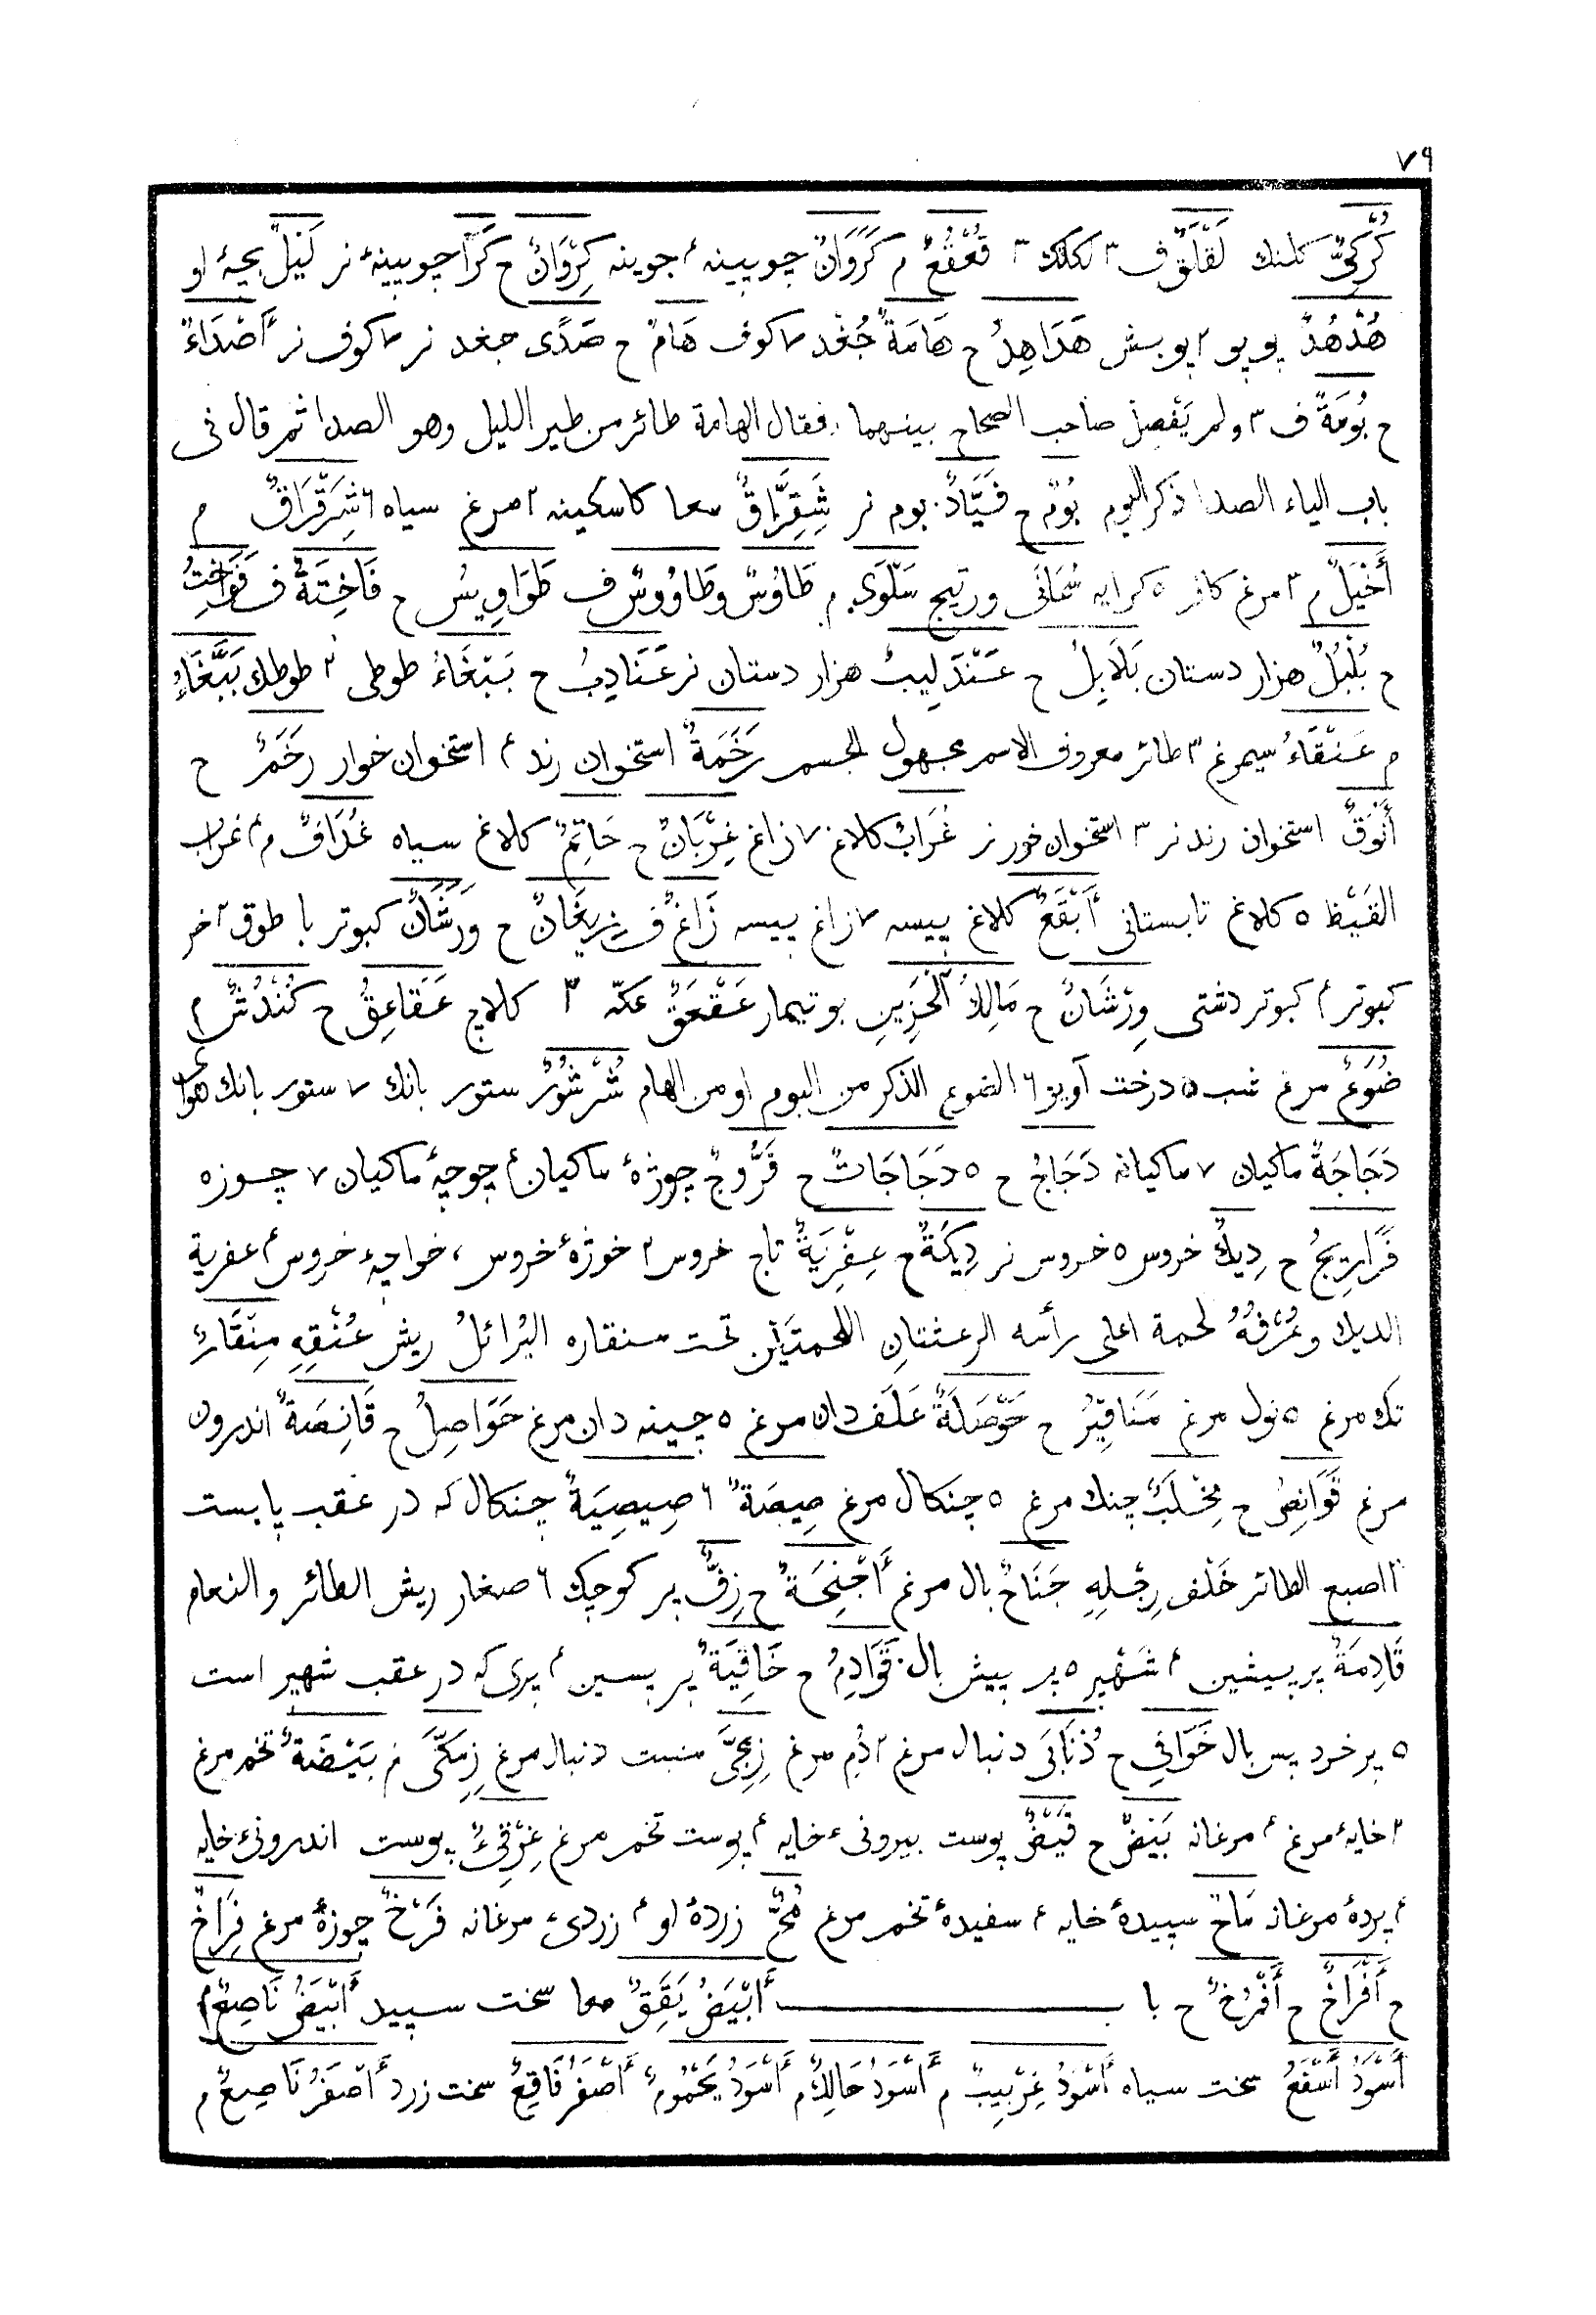 ٧٩
كُرْكِيٌّ كلنك لَقْلَقٌ ف ٣ لكلك ٣ قُعْقُعٌ م كَرَوَانٌ چوبينه ٢ جوينه كِرْوَانٌ ح كَرَا چوبينهٔ نر لَيْلٌ بچهٔ او
هُدْهُدٌ پوپو ٣ پوبش هَدَاهِدُ ح هَامَةٌ جُغْد ٧ كوف هَامٌ ح صَدًى جغد نر ٧ كوف نر أَصْدَاءٌ
ح بُومَةٌ ف ٣ ولم يَفْصِلْ صاحب الصحاح بينهما فقال الهامة طائر من طير الليل وهو الصدا ثم قال فى
باب الياء الصدا ذكر البوم بُومٌ ح فَيَّادٌ بوم نر شَقِرَّاقٌ معا كاسكينه ٣ مرغ سياه ٦ شِرَقْرَاقٌ م
أَخْيَلٌ م ٣ مرغ كافر ٥ كرايه سُمَانَى ورتيج سَلْوَى م طَاوُسٌ وطَاوُوسٌ ف طَوَاوِيسُ ح فَاخِتَةٌ ف فَوَاخِتُ
ح بُلْبُلٌ هزار دستان بَلَابِلُ ح عَنْدَلِيبٌ هزار دستان نر عَنَادِبُ ح بَبْغَاءُ طوطى ٣ طوطك بَبَّغَاءُ
م عَنْقَاءُ سيمرغ ٣ طائر معروف الاسم مجهول الجسم رَخَمَةٌ استخوان رند ٢ استخوان خوار رَخَمٌ ح
أَنُوقٌ استخوان رند نر ٣ استخوان خور نر غُرَابٌ كلاغ ٧ زاغ غِرْبَانٌ ح حَاتِمٌ كلاغ سياه غُدَافٌ م ٢ غراب
القَيْظ ٥ كلاغ تابستانى أَبْقَعُ كلاغ پيسه ٧ زاغ پيسه زَاغٌ ف زِيغَانٌ ح وَرَشَانٌ كبوتر با طوق آخر
كبوتر ٢ كبوتر دشتى وِرْشَانٌ ح مَالِكُ الْحَزِينِ بوتيمار عَقْعَقٌ عكّه ٣ كلاج عَقَاعِقُ ح كُنْدُشٌ م
ضُوَعٌ مرغ شب ٥ درخت آويز ٦ الضوع الذكر من البوم او من الهام شُرْشُورٌ ستور بانك ٧ ستور بانك هوا
دَجَاجَةٌ ماكيان ٧ ماكيانه دَجَاجٌ ح ٥ دَجَاجَاتٌ ح فَرُّوجٌ چوژهٔ ماكيان ٢ چوچهٔ ماكيان ٧ چوزه
فَرَارِيجُ ح دِيكٌ خروس ٥ خروس نر دِيَكَةٌ ح عِفْرِيَةٌ تاج خروس ٣ خوژهٔ خروس ، خواجهٔ خروس ٢ عفرية
الديك وعُرْفُهُ لحمة اعلى رأسه الرعثتانِ اللحمتيْن تحت منقاره البُرائلُ ريش عُنْقِهِ مِنْقَارٌ
تك مرغ ٥ نول مرغ مَنَاقِيْرُ ح حَوْصَلَةٌ عَلَف دان مرغ ٥ چينه دان مرغ حَوَاصِلُ ح قَانِصَةٌ اندرون
مرغ قَوَانِصُ ح مِخْلَبٌ چنك مرغ ٥ چنكال مرغ صِيصَةٌ ٦ صِيصِيَةٌ چنكال كه در عقب پايست
٦ اصبع الطائر خَلْف رِجْلِهِ جَنَاحٌ بال مرغ أَجْنِحَةٌ ح زِفٌّ پر كوچك ٦ صغار ريش الطائر والنعام
قَادِمَةٌ پر پيشين ٢ شَهْپر ٥ پر پيش بال قَوَادِمُ ح خَافِيَةٌ پر پسين ٢ پرى كه در عقب شهپر است
٥ پر خرد پس بال خَوَافِي ح ذُنَابَى دنبال مرغ ٣ دُم مرغ زِمِجَّى منبت دنبال مرغ زِمِكَّى م بَيْضَةٌ تخم مرغ
٣ خايهٔ مرغ ٢ مرغانه بَيْضٌ ح قَيْضٌ پوست بيرونىٔ خايه ٢ پوست تخم مرغ غِرْقِئٌ پوست اندرونىٔ خايه
٢ پردهٔ مرغانه مَاحٌ سپيدهٔ خايه ٢ سفيدهٔ تخم مرغ مُحٌّ زردهٔ او ٢ زردىٔ مرغانه فَرْخٌ چوزهٔ مرغ فِرَاخٌ
ح أَفْرَاخٌ ح أَفْرُخٌ ح با ب أَبْيَضُ يَقَقٌ معا سخت سپيد أَبْيَضُ نَاصِعٌ م
أَسْوَدُ أَسْفَعُ سخت سياه أَسْوَدُ غِرْبِيبٌ م أَسْوَدُ حَالِكٌ م أَسْوَدُ يَحْمُومٌ أَصْفَرُ فَاقِعٌ سخت زرد أَصْفَرُ نَاصِعٌ م